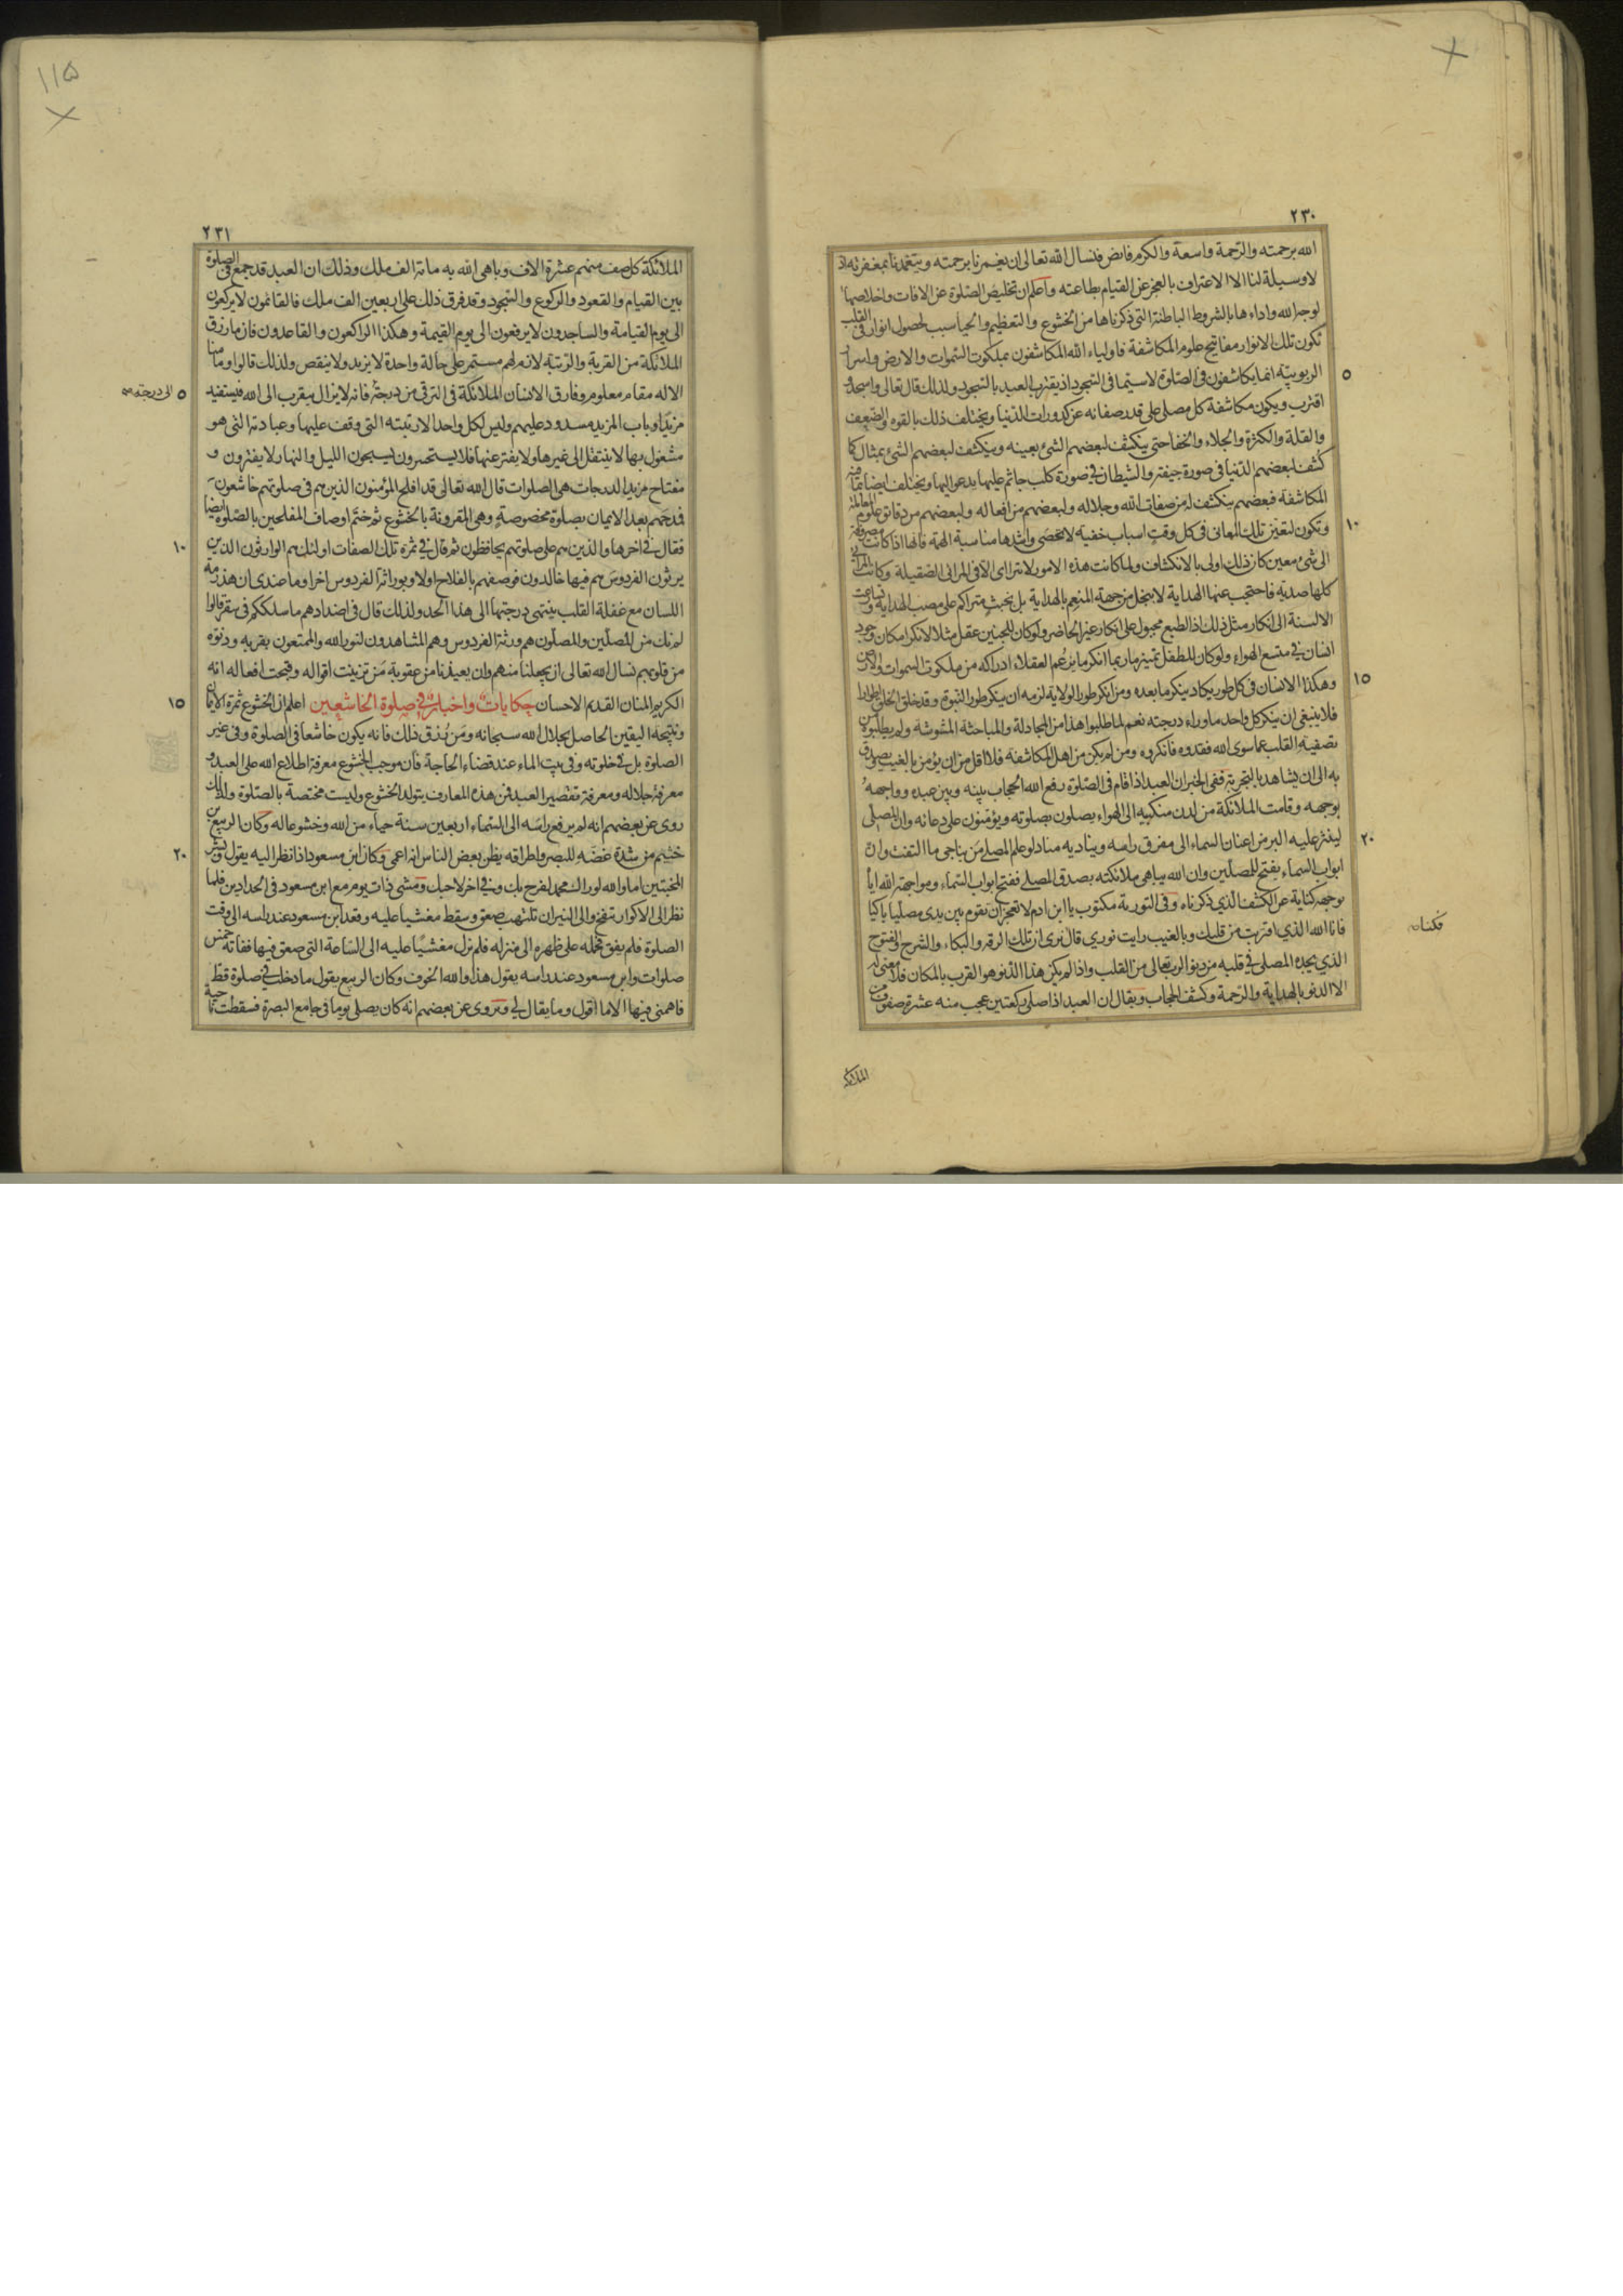 ٢٣٠
الله برحمته والرحمة واسعة والكرم فائض فنسال الله تعالى ان يغمرنا برحمته ويتغمدنا بمغفرته اذ
لا وسيلة لنا الا الاعتراف بالعجز عن القيام بطاعته واعلم ان تخليص الصلوة عن الافات واخلاصها
لوجه الله واداءها بالشروط الباطنة التى ذكرناها من الخشوع والتعظيم والحيا سبب لحصول انوار فى القلب
تكون تلك الانوار مفاتيح علوم المكاشفة فاولياء الله المكاشفون بملكوت السموات والارض واسرار
الربوبيته انما يكاشفون فى الصلوة لاسيما فى السجود اذ يتقرب العبد بالسجود ولذلك قال تعالى واسجد و
٥
اقترب ويكون مكاشفة كل مصلى على قدر صفائه عن كدورات الدنيا ويختلف ذلك بالقوه والضعف
والقلة والكثرة والجلاء والخفا حتى ينكشف لبعضهم الشئ بعينه وينكشف لبعضهم الشئ بمثال كا
كشف لبعضهم الدنيا فى صورة جيفة والشيطان فى صورة كلب جاثم عليها يدعو اليها ويختلف ايضا بما فيه
المكاشفة فبعضهم ينكشف له من صفات الله وجلاله ولبعضهم من افعاله ولبعضهم من دقائق علوم المعاملة
وتكون لتعين تلك المعانى فى كل وقت اسباب خفيه لا تحصى واشدها مناسبة الهمة فانها اذا كانت مصروفة
١٠
الى شئ معين كان ذلك اولى بالانكشاف ولما كانت هذه الامور لا تتراءى الا فى المرائى الصقيلة وكانت المرائى
كلها صدية فاحتجب عنها الهداية لا ببخل من جهة المنعم بالهداية بل بخبث متراكم على مصب الهداية وتسارعت
الالسنة الى انكار مثل ذلك اذ الطبع مجبول على انكار غير الحاضر ولو كان للجنين عقل مثلا لانكر امكان وجود
انسان فى متسع الهواء ولو كان للطفل تميز ما ربما انكر ما يزعم العقلاء ادراكه من ملكوت السموات والارض
وهكذا الانسان فى كل طور يكاد ينكر ما بعده ومن انكر طور الولاية لزمه ان ينكر طور النبوة وقد خلق الخلق اطوارا
١٥
فلا ينبغى ان ينكر كل واحد ما وراء درجته نعم لما طلبوا هذا من المجادلة والمباحثة المشوشة ولم يطلبوه من
تصفية القلب عما سوى الله فقدوه فانكروه ومن لم يكن من اهل المكاشفة فلا اقل من ان يؤمن بالغيب ويصدق
به الى ان يشاهد بالتجربة ففى الخبر ان العبد اذا قام فى الصلوة رفع الله الحجاب بينه وبين عبده وواجهه
بوجهه وقامت الملائكة من لدن منكبيه الى الهواء يصلون بصلوته ويؤمنون على دعائه وان المصلى
لينثر عليه البر من اعنان السماء الى مفرق راسه ويناديه مناد لو علم المصلى من يناجى ما التفت وان
٢٠
ابواب السماء يفتح للمصلين وان الله يباهى ملائكته بصدق المصلى ففتح ابواب السماء ومواجهة الله اياه
بوجهه كناية عن الكشف الذي ذكرناه وفى التورية مكتوب يا ابن ادم لا تعجز ان تقوم بين يدى مصليا باكيا
فانا الله الذي اقتربت من قلبك وبالغيب رايت نوري قال نرى ان تلك الرقة والبكاء والفتوح
الذي يجده المصلى فى قلبه من دنو الرب تعالى من القلب واذا لم يكن هذا الدنو هو القرب بالمكان فلا معنى له
الا الدنو بالهداية والرحمة وكشف الحجاب ويقال ان العبد اذا صلى ركعتين عجب منه عشرة صفوف من
الملائكة
٢٣١
١١٥
الملائكة كل صف منهم عشرة الاف وباهى الله به مائة الف ملك وذلك ان العبد قد جمع فى الصلوة
بين القيام والقعود والركوع والسجود وقد فرق ذلك على اربعين الف ملك فالقائمون لا يركعون
الى يوم القيامة والساجدون لا يرفعون الى يوم القيمة وهكذا الراكعون والقاعدون فان ما رزق
الملائكة من القربة والرتبة لازم لهم مستمر على حالة واحدة لا يزيد ولا ينقص ولذلك قالوا وما منا
الا له مقام معلوم وفارق الانسان الملائكة فى الترقى من درجة فانه لا يزال يتقرب الى الله فيستفيد
٥
الى درجة
مزيدا وباب المزيد مسدود عليهم وليس لكل واحد الا رتبته التى وقف عليها وعبادته التى هو
مشغول بها لا ينتقل الى غيرها ولا يفتر عنها فلا يستحسرون يسبحون الليل والنهار لا يفترون و
مفتاح مزيد الدرجات هى الصلوات قال الله تعالى قد افلح المؤمنون الذين هم فى صلوتهم خاشعون
فمدحهم بعد الايمان بصلوة مخصوصة وهى المقرونة بالخشوع ثم ختم اوصاف المفلحين بالصلوة ايضا
فقال فى اخرها والذين هم على صلوتهم يحافظون ثم قال فى ثمرة تلك الصفات اولئك هم الوارثون الذين
١٠
يرثون الفردوس هم فيها خالدون فوصفهم بالفلاح اولا وبوراثة الفردوس اخرا وما عندى ان هذرمة
اللسان مع غفلة القلب ينتهى درجتها الى هذا الحد ولذلك قال فى اضدادهم ما سلككم فى سقر قالوا
لم نك من المصلين والمصلون هم ورثة الفردوس وهم المشاهدون لنور الله والممتعون بقربه ودنوه
من قلوبهم نسال الله تعالى ان يجعلنا منهم وان يعيذنا من عقوبة من تزينت اقواله وقبحت افعاله انه
الكريم المنان القديم الاحسان حكايات واخبار فى صلوة الخاشعين اعلم ان الخشوع ثمرة الايمان
١٥
ونتيجة اليقين الحاصل بجلال الله سبحانه ومن رزق ذلك فانه يكون خاشعا فى الصلوة وفى غير
الصلوة بل فى خلوته وفى بيت الماء عند قضاء الحاجة فان موجب الخشوع معرفة اطلاع الله على العبد و
معرفة جلاله ومعرفة تقصير العبد فمن هذه المعارف يتولد الخشوع وليست مختصة بالصلوة ولذلك
روى عن بعضهم انه لم يرفع راسه الى السماء اربعين سنة حياء من الله وخشوعا له وكان الربيع بن
خثيم من شدة غضه للبصر واطراقه يظن بعض الناس انه اعمى وكان ابن مسعود اذا نظر اليه يقول وبشر
٢٠
المخبتين اما والله لو راك محمد لفرح بك وفى اخر لاحبك ومشى ذات يوم مع ابن مسعود فى الحدادين فلما
نظر الى الاكوار تنفخ والى النيران تلتهب صعق وسقط مغشيا عليه وقعد ابن مسعود عند راسه الى وقت
الصلوة فلم يفق فحمله على ظهره الى منزله فلم يزل مغشيا عليه الى الساعة التى صعق فيها ففاتته خمس
صلوات وابن مسعود عند راسه يقول هذا والله الخوف وكان الربيع يقول ما دخلت فى صلوة قط
فاهمنى فيها الا ما اقول وما يقال لى ويروى عن بعضهم انه كان يصلى يوما فى جامع البصرة فسقطت